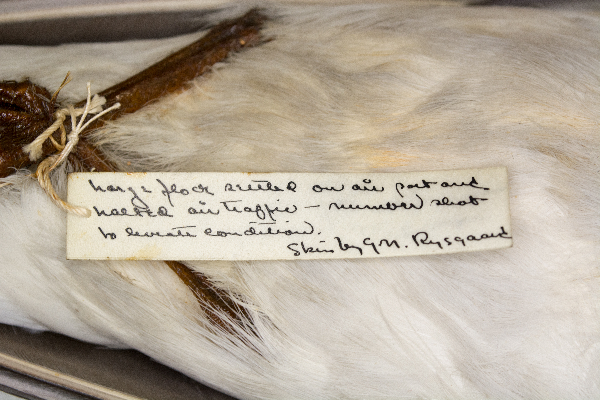 Large flock settled on air port and
halted air traffic – number shot
to levente condition.
Skin by G.N. Rysgaard